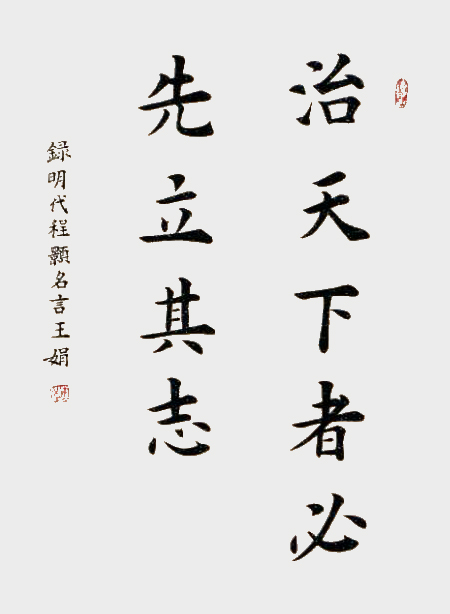 治天下者必
先立其志
録明代程颢名言王娟